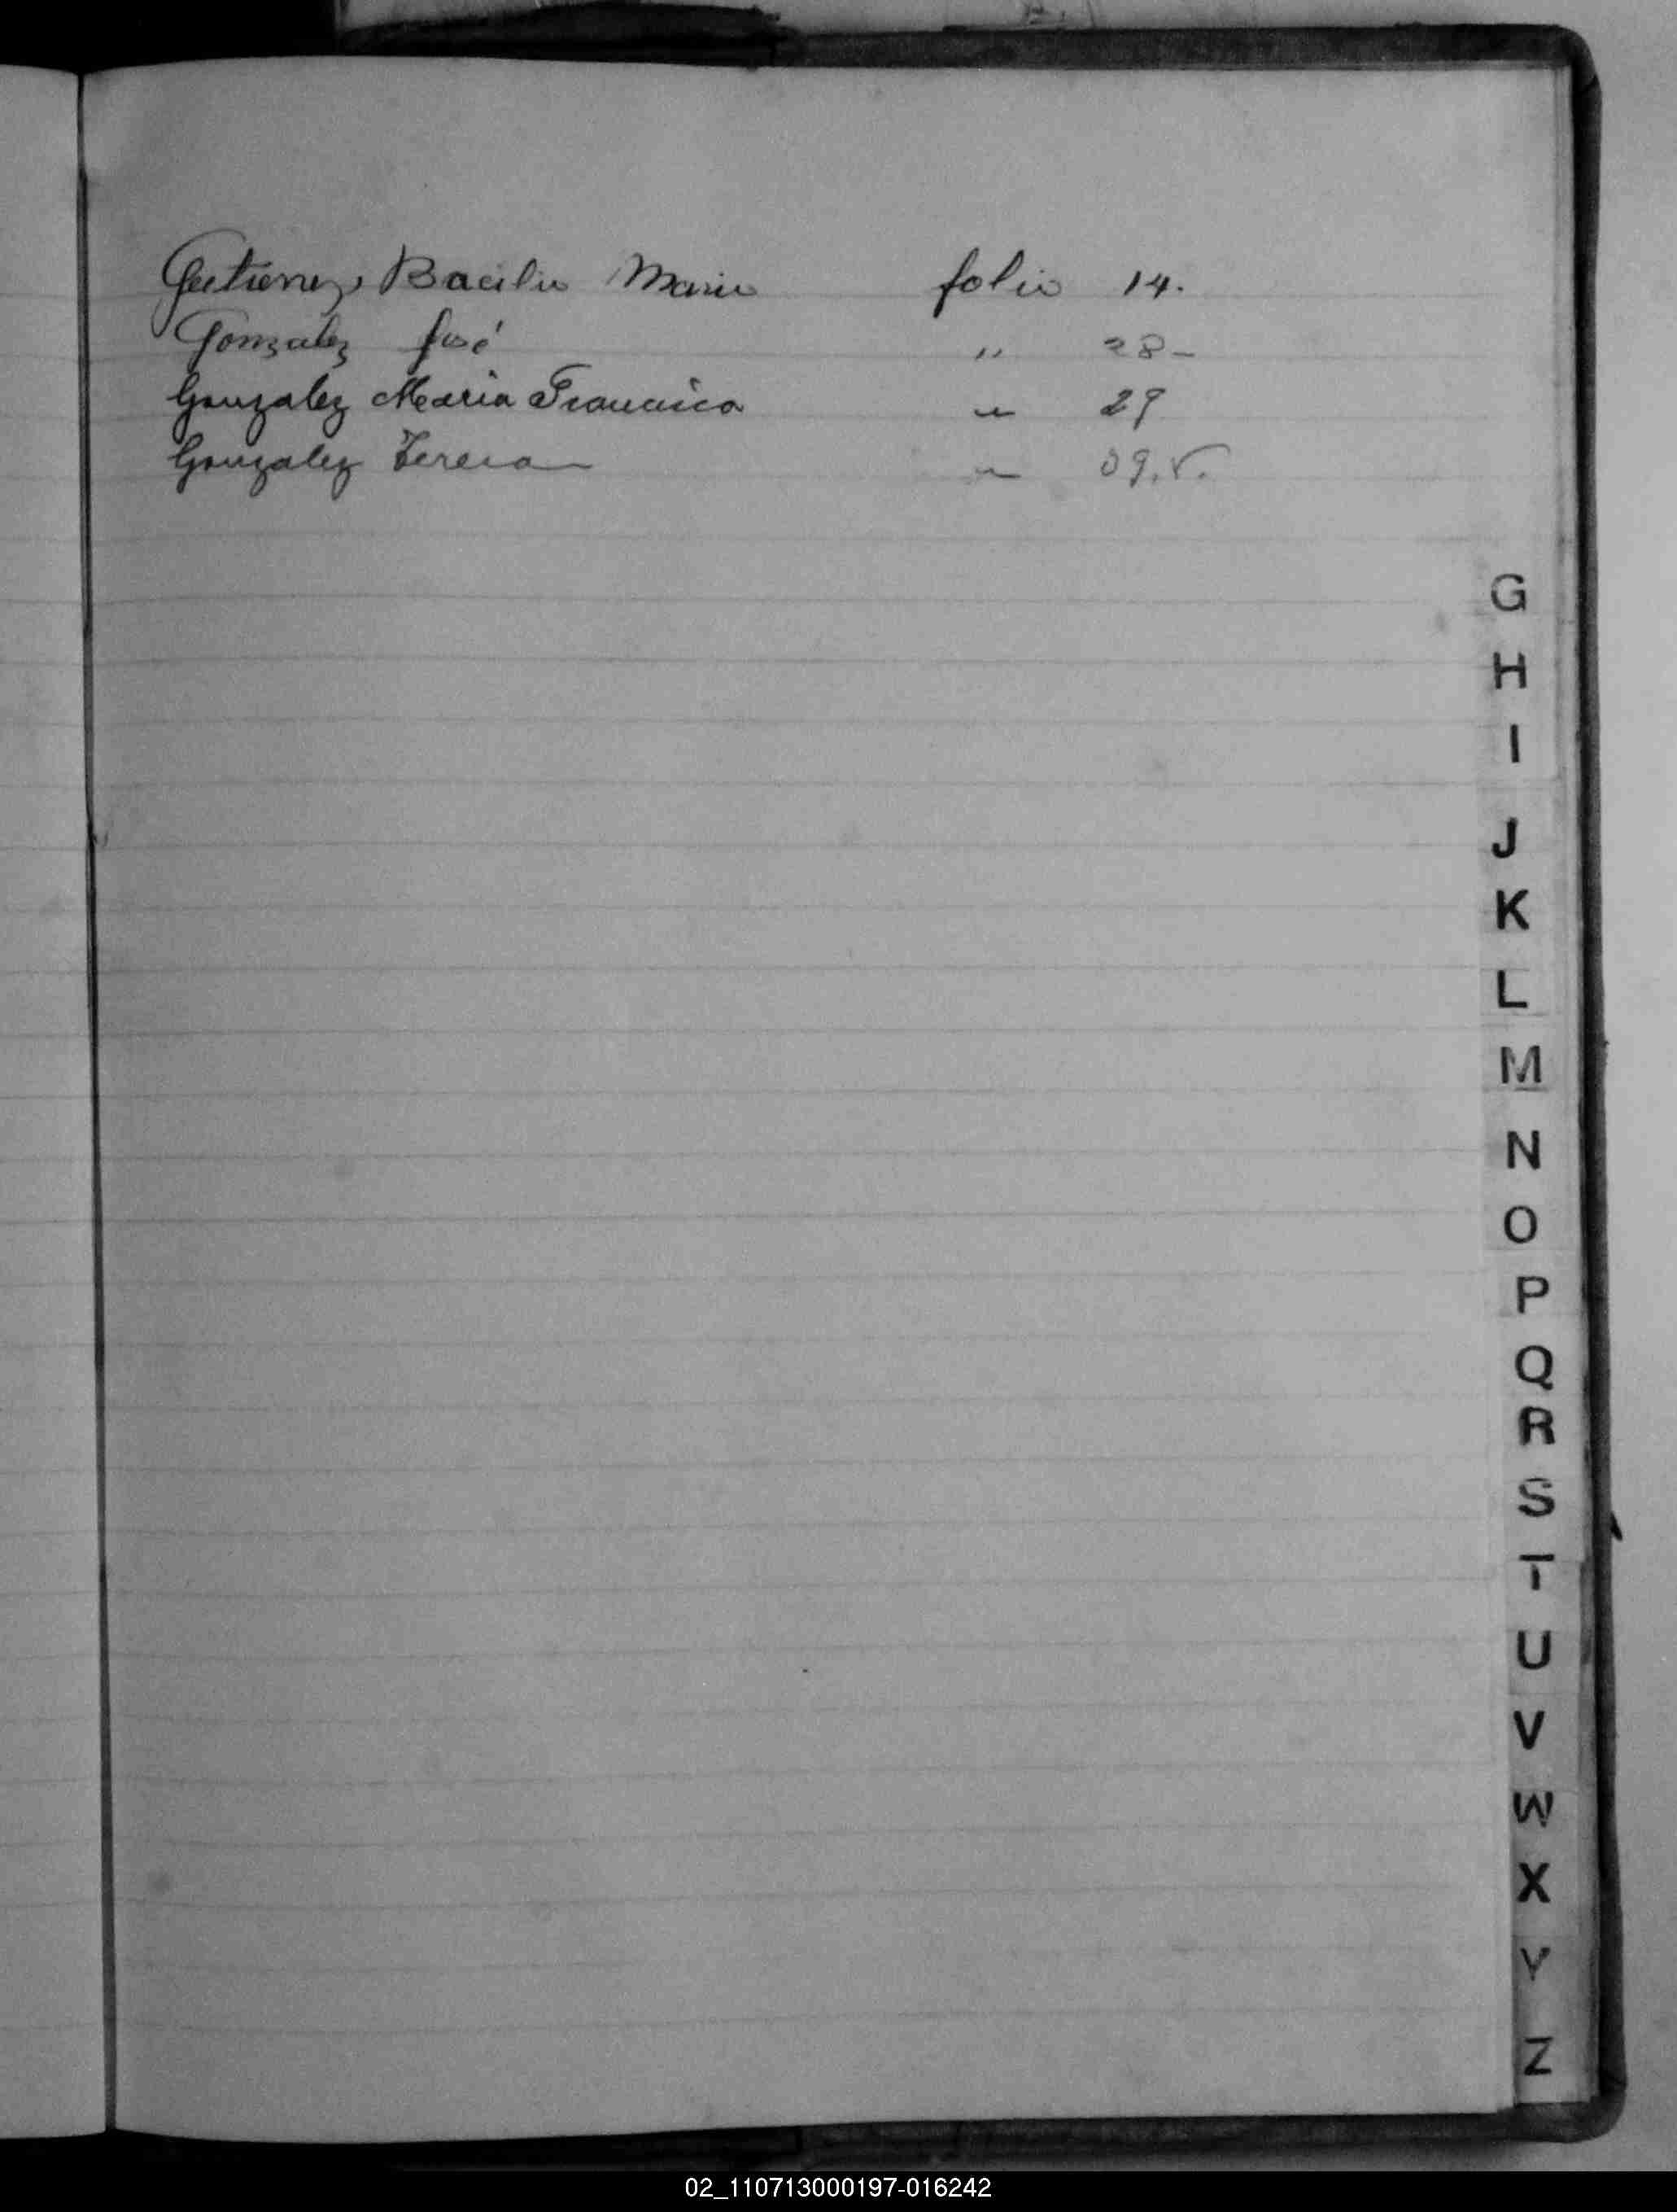 Gutierrez, Bacilio Mario folio 14.
Gonzalez José " 28-
Gonzalez Maria Francisca " 29
Gonzalez Teresa " 09.V.
G
H
I
J
K
L
M
N
O
P
Q
R
S
T
U
V
W
X
Y
Z
02_110713000197-016242